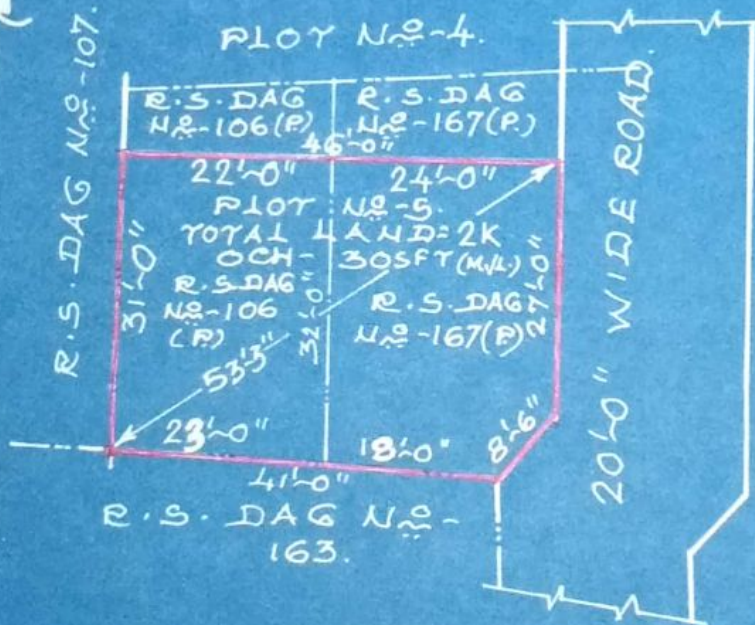 PLOT No-4.
R.S. DAG No-107.
R.S. DAG
No-106(P)
R.S. DAG
No-167(P.)
46'-0"
22'-0" 24'-0"
PLOT No-5.
TOTAL LAND=2K
OCH-30SFT(M/L.)
R.S. DAG
No-106
(P)
R.S. DAG
No-167(P)
31'-0"
32'-0"
27'-0"
53'3"
23'-0" 18'-0"
8'-6"
41'-0"
R.S. DAG No-
163.
20'-0" WIDE ROAD.